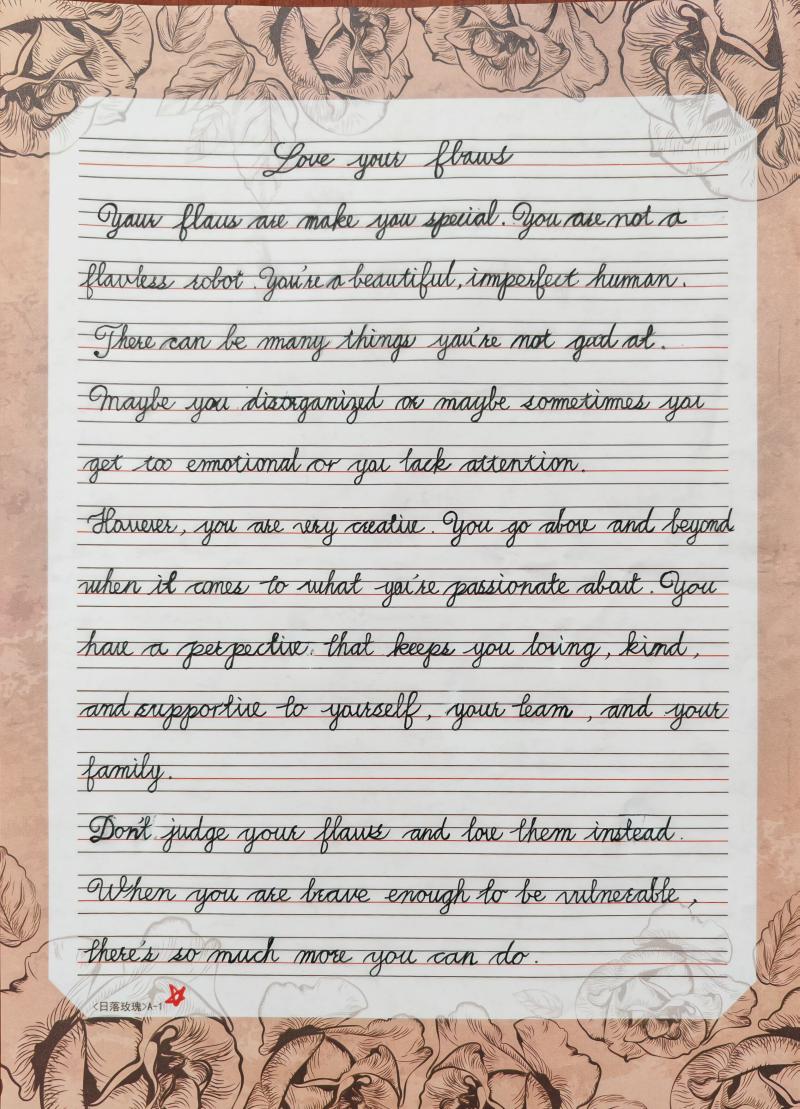 Love your flaws
Your flaws are make you special. You are not a
flawless robot. You're a beautiful, imperfect human.
There can be many things you're not good at.
Maybe you disorganized or maybe sometimes you
get too emotional or you lack attention.
However, you are very creative. You go above and beyond
when it comes to what you're passionate about. You
have a perpective that keeps you loving, kind,
and supportive to yourself, your team, and your
family.
Don't judge your flaws and love them instead.
When you are brave enough to be vulnerable,
there's so much more you can do.
<日落玫瑰>A-1